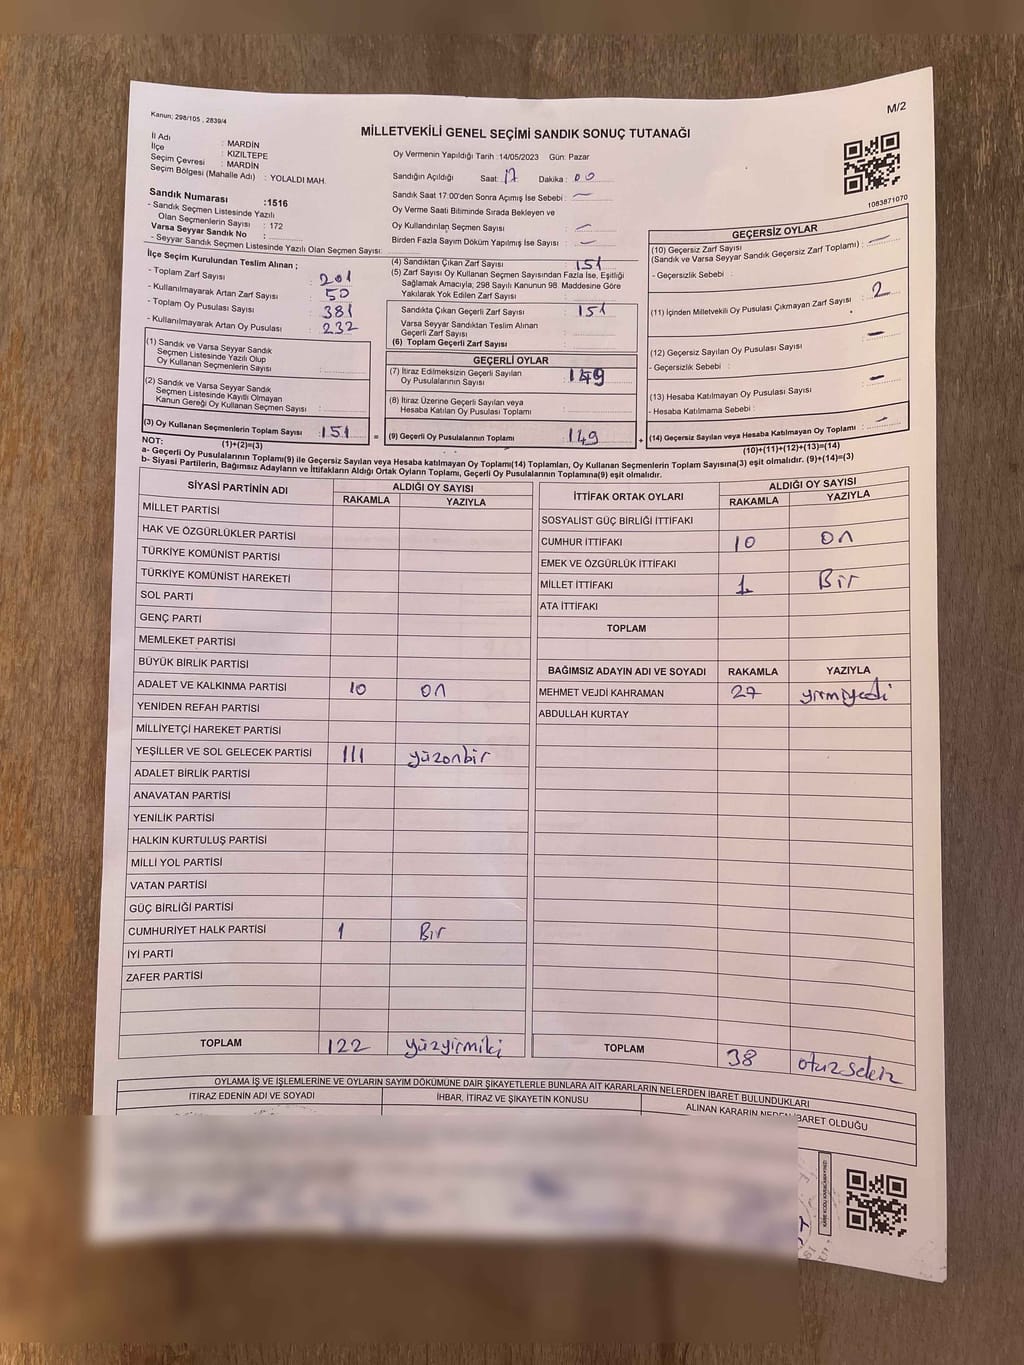 Kanun; 298/105 , 2839/4
M/2
MİLLETVEKİLİ GENEL SEÇİMİ SANDIK SONUÇ TUTANAĞI
İl Adı : MARDİN
İlçe : KIZILTEPE
Seçim Çevresi : MARDİN
Seçim Bölgesi (Mahalle Adı) : YOLALDI MAH.
Sandık Numarası :1516
- Sandık Seçmen Listesinde Yazılı
Olan Seçmenlerin Sayısı : 172
Varsa Seyyar Sandık No :
- Seyyar Sandık Seçmen Listesinde Yazılı Olan Seçmen Sayısı:
Oy Vermenin Yapıldığı Tarih :14/05/2023 Gün: Pazar
Sandığın Açıldığı Saat: 17 Dakika : 00
Sandık Saat 17:00'den Sonra Açımış İse Sebebi : —
Oy Verme Saati Bitiminde Sırada Bekleyen ve
Oy Kullandırılan Seçmen Sayısı : —
Birden Fazla Sayım Döküm Yapılmış İse Sayısı : —
1083871070
İlçe Seçim Kurulundan Teslim Alınan ;
- Toplam Zarf Sayısı : 201
- Kullanılmayarak Artan Zarf Sayısı : 50
- Toplam Oy Pusulası Sayısı : 381
- Kullanılmayarak Artan Oy Pusulası : 232
(1) Sandık ve Varsa Seyyar Sandık
Seçmen Listesinde Yazılı Olup
Oy Kullanan Seçmenlerin Sayısı :
(2) Sandık ve Varsa Seyyar Sandık
Seçmen Listesinde Kayıtlı Olmayan
Kanun Gereği Oy Kullanan Seçmen Sayısı :
(3) Oy Kullanan Seçmenlerin Toplam Sayısı : 151
(1)+(2)=(3)
(4) Sandıktan Çıkan Zarf Sayısı : 151
(5) Zarf Sayısı Oy Kullanan Seçmen Sayısından Fazla İse, Eşitliği
Sağlamak Amacıyla; 298 Sayılı Kanunun 98. Maddesine Göre
Yakılarak Yok Edilen Zarf Sayısı :
Sandıkta Çıkan Geçerli Zarf Sayısı : 151
Varsa Seyyar Sandıktan Teslim Alınan
Geçerli Zarf Sayısı :
(6) Toplam Geçerli Zarf Sayısı :
GEÇERLİ OYLAR
(7) İtiraz Edilmeksizin Geçerli Sayılan
Oy Pusulalarının Sayısı : 149
(8) İtiraz Üzerine Geçerli Sayılan veya
Hesaba Katılan Oy Pusulası Toplamı :
= (9) Geçerli Oy Pusulalarının Toplamı : 149 +
GEÇERSİZ OYLAR
(10) Geçersiz Zarf Sayısı
(Sandık ve Varsa Seyyar Sandık Geçersiz Zarf Toplamı) : —
- Geçersizlik Sebebi :
(11) İçinden Milletvekili Oy Pusulası Çıkmayan Zarf Sayısı : 2
(12) Geçersiz Sayılan Oy Pusulası Sayısı : —
- Geçersizlik Sebebi :
(13) Hesaba Katılmayan Oy Pusulası Sayısı : —
- Hesaba Katılmama Sebebi :
(14) Geçersiz Sayılan veya Hesaba Katılmayan Oy Toplamı : —
(10)+(11)+(12)+(13)=(14)
NOT:
a- Geçerli Oy Pusulalarının Toplamı(9) ile Geçersiz Sayılan veya Hesaba katılmayan Oy Toplamı(14) Toplamları, Oy Kullanan Seçmenlerin Toplam Sayısına(3) eşit olmalıdır. (9)+(14)=(3)
b- Siyasi Partilerin, Bağımsız Adayların ve İttifakların Aldığı Ortak Oyların Toplamı, Geçerli Oy Pusulalarının Toplamına(9) eşit olmalıdır.
SİYASİ PARTİNİN ADI ALDIĞI OY SAYISI
RAKAMLA YAZIYLA
MİLLET PARTİSİ
HAK VE ÖZGÜRLÜKLER PARTİSİ
TÜRKİYE KOMÜNİST PARTİSİ
TÜRKİYE KOMÜNİST HAREKETİ
SOL PARTİ
GENÇ PARTİ
MEMLEKET PARTİSİ
BÜYÜK BİRLİK PARTİSİ
ADALET VE KALKINMA PARTİSİ 10 on
YENİDEN REFAH PARTİSİ
MİLLİYETÇİ HAREKET PARTİSİ
YEŞİLLER VE SOL GELECEK PARTİSİ 111 yüzonbir
ADALET BİRLİK PARTİSİ
ANAVATAN PARTİSİ
YENİLİK PARTİSİ
HALKIN KURTULUŞ PARTİSİ
MİLLİ YOL PARTİSİ
VATAN PARTİSİ
GÜÇ BİRLİĞİ PARTİSİ
CUMHURİYET HALK PARTİSİ 1 Bir
İYİ PARTİ
ZAFER PARTİSİ
TOPLAM 122 yüzyirmiki
İTTİFAK ORTAK OYLARI ALDIĞI OY SAYISI
RAKAMLA YAZIYLA
SOSYALİST GÜÇ BİRLİĞİ İTTİFAKI
CUMHUR İTTİFAKI 10 on
EMEK VE ÖZGÜRLÜK İTTİFAKI
MİLLET İTTİFAKI 1 Bir
ATA İTTİFAKI
TOPLAM
BAĞIMSIZ ADAYIN ADI VE SOYADI RAKAMLA YAZIYLA
MEHMET VEJDİ KAHRAMAN 27 yirmiyedi
ABDULLAH KURTAY
TOPLAM 38 otuzsekiz
OYLAMA İŞ VE İŞLEMLERİNE VE OYLARIN SAYIM DÖKÜMÜNE DAİR ŞİKAYETLERLE BUNLARA AİT KARARLARIN NELERDEN İBARET BULUNDUKLARI
İTİRAZ EDENİN ADI VE SOYADI İHBAR, İTİRAZ VE ŞİKAYETİN KONUSU ALINAN KARARIN NEDEN İBARET OLDUĞU